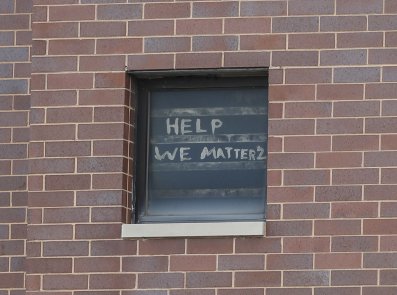 HELP
WE MATTER2